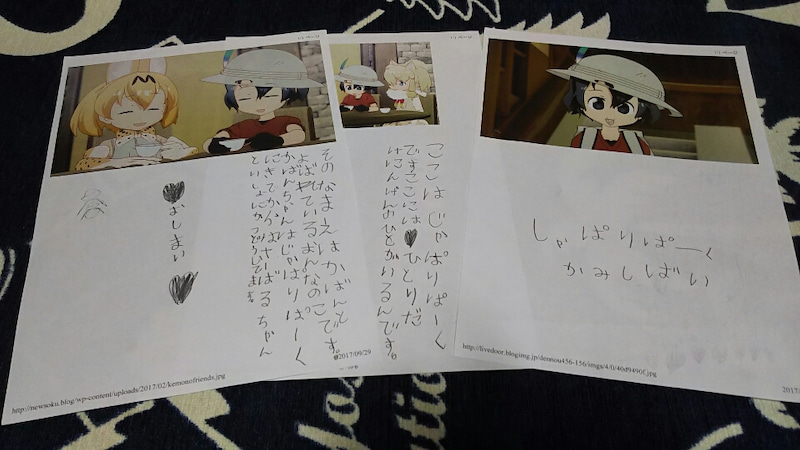 しゃぱりぱーく
かみしばい
http://livedoor.blogimg.jp/denmou456-156/imgs/4/0/40d9490f.jpg
ここはじゃぱりぱーく
ですここには♥ひとりだ
けにんげんのひとがいるんです。
2017/09/29
そのなまえはかばんと
よばれているおんなのこです。
かばんちゃんはじゃぱりぱーく
にきてからはサーバルちゃん
といっしょにかつどうしてます。
♥おしまい♥
http://newsoku.blog/wp-content/uploads/2017/02/kemonofriends.jpg